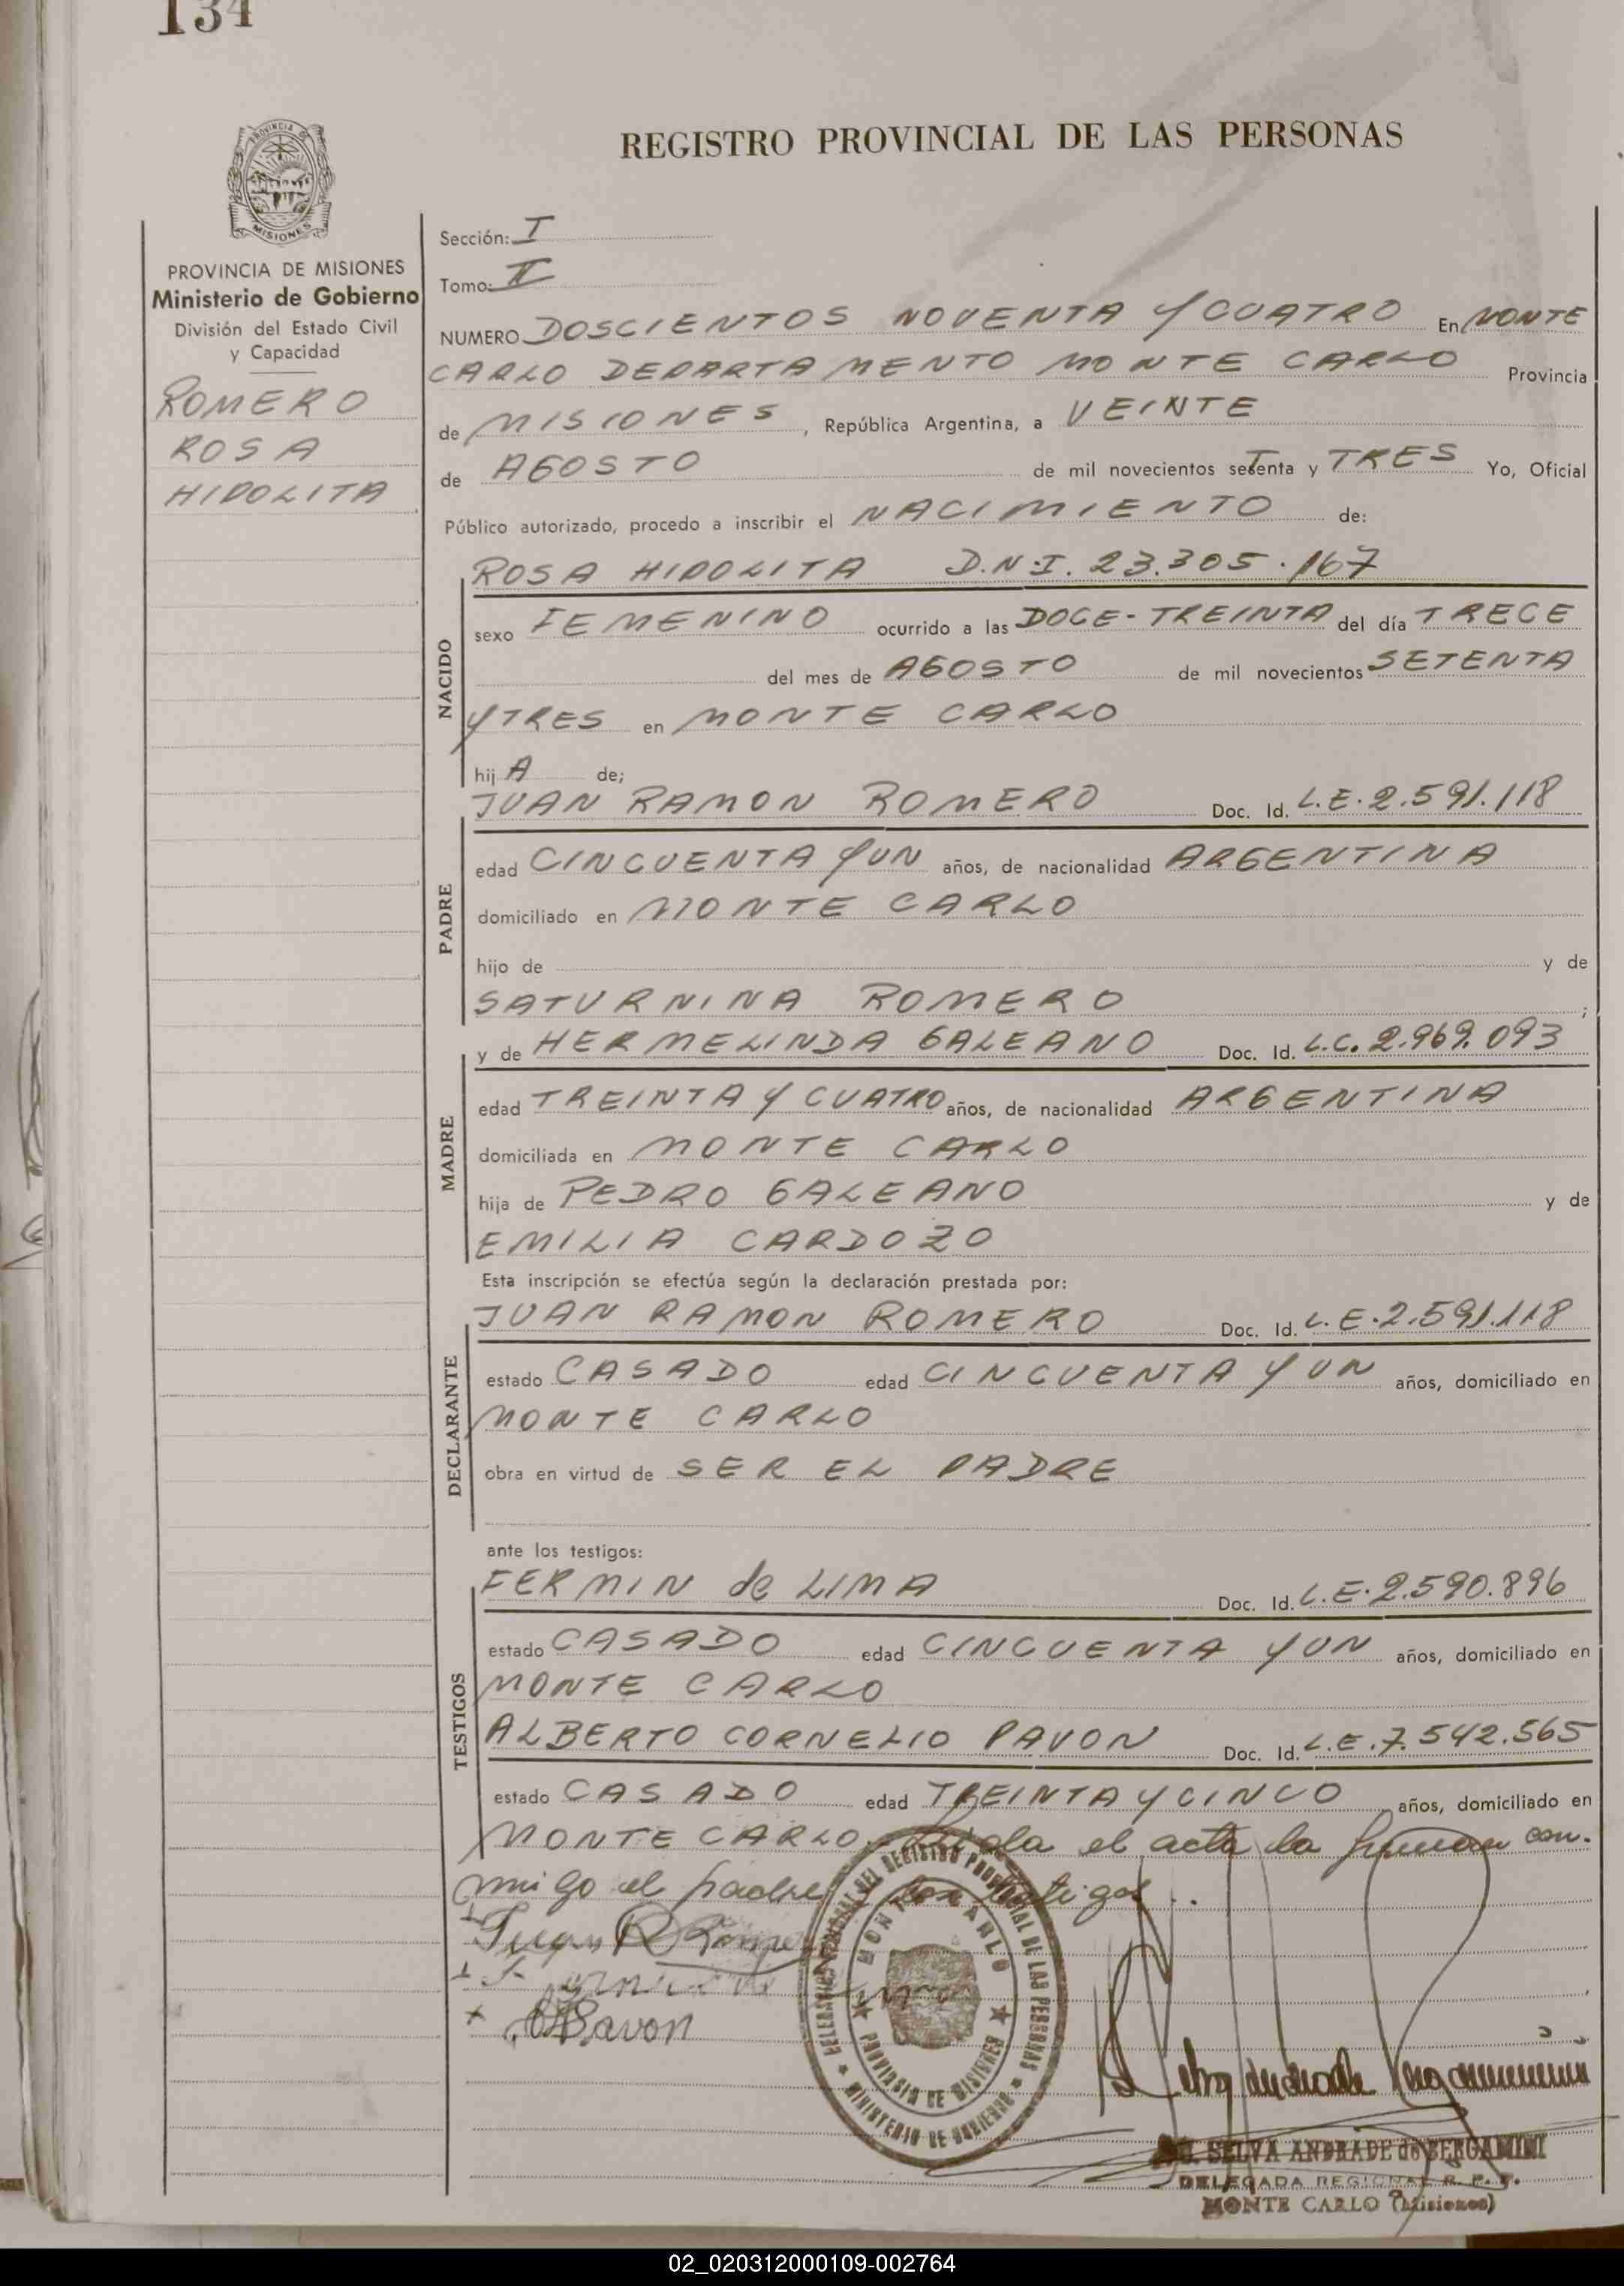 134
REGISTRO PROVINCIAL DE LAS PERSONAS
PROVINCIA DE MISIONES
Ministerio de Gobierno
División del Estado Civil
y Capacidad
ROMERO
ROSA
HIPOLITA
Sección: I
Tomo: II
NUMERO DOSCIENTOS NOVENTA Y CUATRO En MONTE
CARLO DEPARTAMENTO MONTE CARLO Provincia
de MISIONES, República Argentina, a VEINTE
de AGOSTO de mil novecientos setenta y TRES Yo, Oficial
Público autorizado, procedo a inscribir el NACIMIENTO de:
ROSA HIPOLITA D.N.I. 23.305.167
NACIDO
sexo FEMENINO ocurrido a las DOCE-TREINTA del día TRECE
del mes de AGOSTO de mil novecientos SETENTA
Y TRES en MONTE CARLO
hij A de;
JUAN RAMON ROMERO Doc. Id. L.E. 2.591.118
PADRE
edad CINCUENTA Y UN años, de nacionalidad ARGENTINA
domiciliado en MONTE CARLO
hijo de y de
SATURNINA ROMERO ;
y de HERMELINDA GALEANO Doc. Id. L.C. 2.969.093
MADRE
edad TREINTA Y CUATRO años, de nacionalidad ARGENTINA
domiciliada en MONTE CARLO
hija de PEDRO GALEANO y de
EMILIA CARDOZO
Esta inscripción se efectúa según la declaración prestada por:
JUAN RAMON ROMERO Doc. Id. L.E. 2.591.118
DECLARANTE
estado CASADO edad CINCUENTA Y UN años, domiciliado en
MONTE CARLO
obra en virtud de SER EL PADRE
ante los testigos:
FERMIN de LIMA Doc. Id. L.E. 2.590.896
TESTIGOS
estado CASADO edad CINCUENTA Y UN años, domiciliado en
MONTE CARLO
ALBERTO CORNELIO PAVON Doc. Id. L.E. 7.542.565
estado CASADO edad TREINTA Y CINCO años, domiciliado en
MONTE CARLO. Leida el acta la firman con-
migo el padre y los testigos..
Juan R Romero
APavon
MONTE CARLO
PROVINCIA DE MISIONES
MINISTERIO DE GOBIERNO
SELVA ANDRADE de BERGAMINI
DELEGADA REGIONAL R. P. P.
MONTE CARLO (Misiones)
02_020312000109-002764